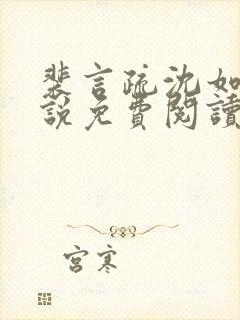 裴言疏沈如
說免費閱讀
宮寒